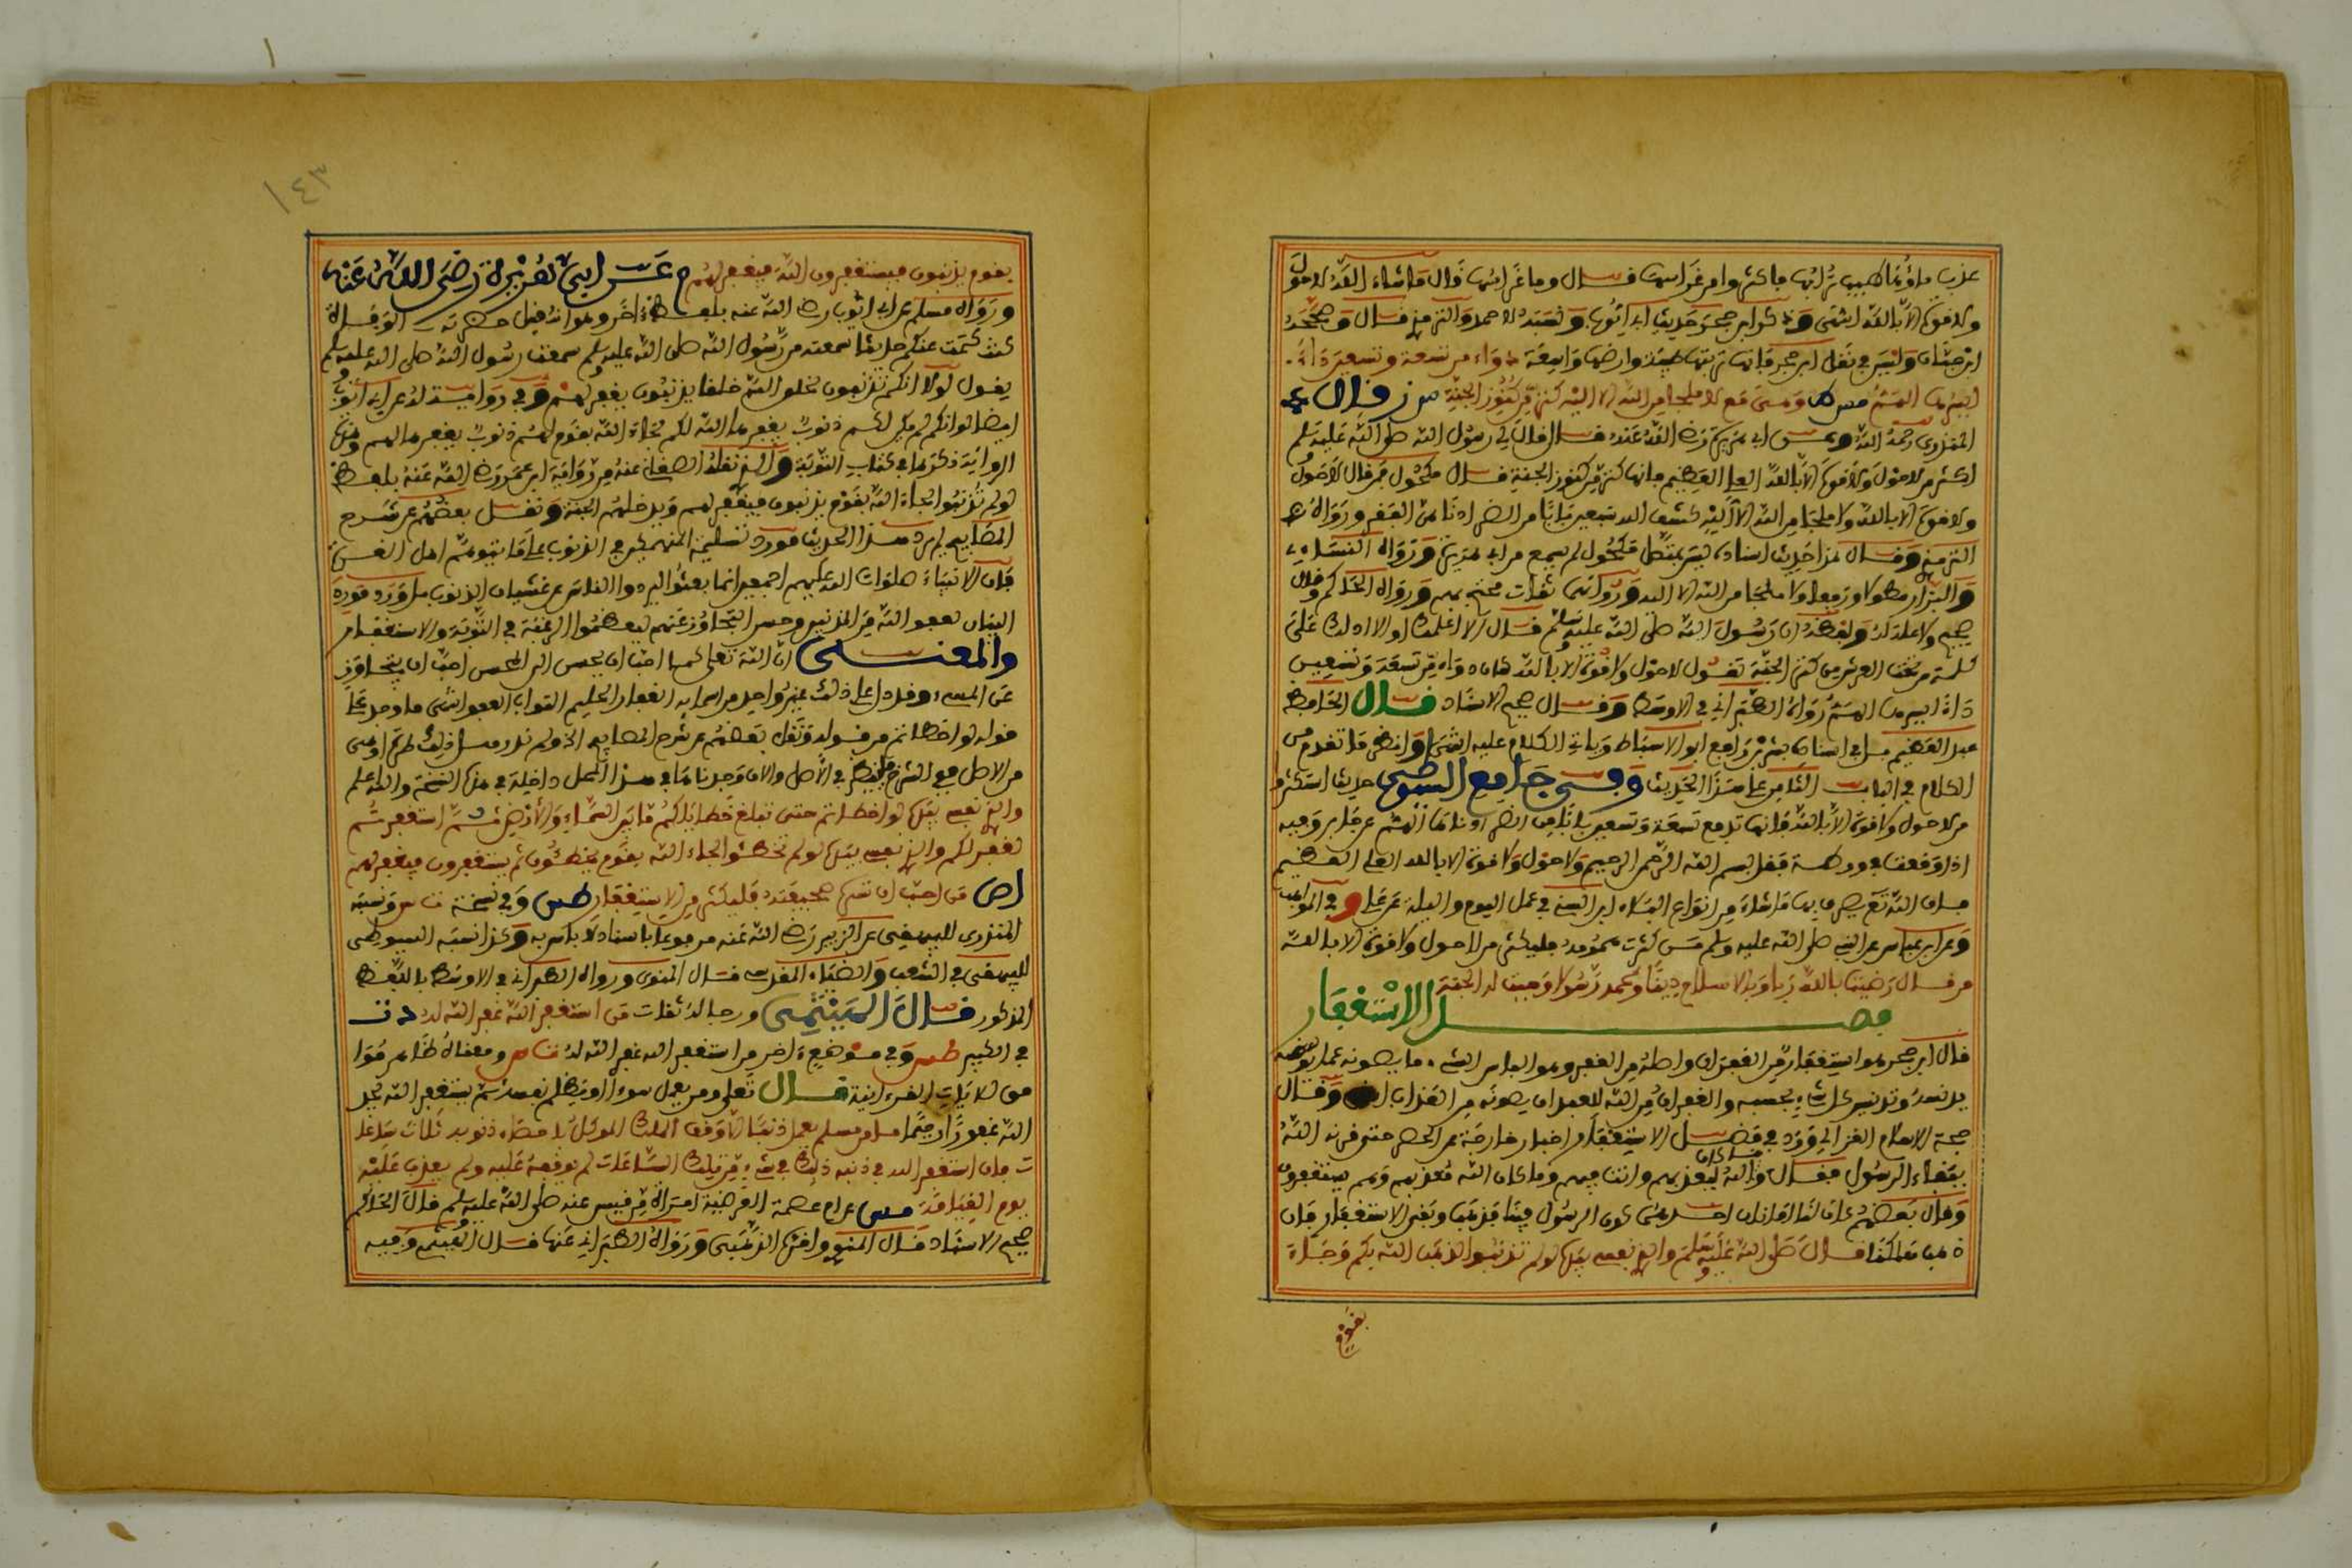 عذب ماؤها طيب ترابها فاكثروا من غراسها فــال وما غراسها قال ما شاء الله لا حول
ولا قوة الا بالله انتهى وذكر ابن حجر حديث ابي ايوب ونسبه لاحمد والترمذي قــال وصححه
ابن حبان وليس في نقل ابن حجر فانها تربتها طيبة وارضها واسعة دواء من تسعة وتسعين داء
ايسرها الهم مس ومن مع لا ملجا من الله الا اليه كنز من كنوز الجنة س ز قال
المنذري رحمه الله وعن ابي هريرة رضي الله عنه قــال قال لي رسول الله صلى الله عليه وسلم
اكثر من لا حول ولا قوة الا بالله العلي العظيم فانها كنز من كنوز الجنة قــال مكحول فمن قال لا حول
ولا قوة الا بالله ولا ملجا من الله الا اليه كشف الله سبعين بابا من الضر ادناهن الفقر ورواه
الترمذي وقــال هذا حديث اسناده ليس بمتصل مكحول لم يسمع من ابي هريرة ورواه النساءي
والبزار مطولا ورفعا ولا ملجا من الله الا اليه ورواتهما ثقات محتج بهم ورواه الحاكم وقال
صحيح ولا علة له ولفظه ان رسول الله صلى الله عليه وسلم قــال الا اعلمك او الا ادلك على
كلمة من تحت العرش من كنز الجنة تقــول لا حول ولا قوة الا بالله كان دواء من تسعة وتسعين
داء ايسرها الهم رواه الطبراني في الاوسط وقــال صحيح الاسناد قــال الحافظ
عبد العظيم بل في اسناده بشر بن رافع ابو الاسباط وياتي الكلام عليه انتهى وانظر ما تقدم من
الكلام في الباب الثامن على هذا الحديث وفي جامع السيوطي حديث استكثروا
من لا حول ولا قوة الا بالله فانها تدفع تسعة وتسعين بابا من الضر ادناها الهم عن جابر وفيه
اذا وقعت في ورطــة فقل بسم الله الرحمن الرحيم ولا حول ولا قوة الا بالله العلي العظيم
فان الله تعالى يصرف بها ما شاء من انواع البلاء ابن السني في عمل اليوم والليلة عن علي وفي المواهب
وعن ابن عباس عن النبي صلى الله عليه وسلم من كثرت همومه فليكثر من لا حول ولا قوة الا بالله
من قــال رضيت بالله ربا وبالاسلام دينا وبمحمد رسولا وجبت له الجنة
فصــــــــل الاستغفار
قال ابن حجر هو استفعار من الغفران واصله من الغفر وهو الباس الشيء ما يصونه عما
يدنسه وتدنيس كل شيء بحسبه والغفران من الله للعبد ان يصونه من العذاب وقــال
حجة الاسلام الغزالي ورد في فضــل الاستغفار اخبار خارجة عن الحصر حتى قرنه الله
ببقاء الرسول فقــال وما كان الله ليعذبهم وانت فيهم وما كان الله معذبهم وهم يستغفرون
وقال بعضهم كان لنا امانان احدهما كون الرسول فينا فذهب وبقي الاستغفار فان
ذهب هلكنا قــال صلى الله عليه وسلم والذي نفسي بيده لو لم تذنبوا لذهب الله بكم وجاء
بقوم
١٤٣
بقوم يذنبون فيستغفرون الله فيغفر لهم م عن ابي هريرة رضي الله عنه
ورواه مسلم عن ابي ايوب رضي الله عنه بلفظ اخر وهو انه قيل حضرته الوفــاة
كنت كتمت عنكم حديثا سمعته من رسول الله صلى الله عليه وسلم سمعت رسول الله صلى الله عليه وسلم
يقول لولا انكم تذنبون لخلق الله خلقا يذنبون يغفر لهــم وفي روايــة له عن ابي ايوب
ايضا لو انكم لم يكن لكم ذنوب يغفرها الله لكم لجاء الله بقوم لهم ذنوب يغفرها لهم وهذه
الرواية ذكرها في كتاب التوبة والذي نقله الصغاني عنه من رواية ابن عمر رضي الله عنه بلفظ
لو لم تذنبوا لجاء الله بقوم يذنبون فيغفر لهم ويدخلهم الجنة ونقــل بعضهم عن شرح
المصابيح لم يرد هــذا الحديث مورد تسلية المنهمكين في الذنوب على ما يتوهمه اهل الغــرة
فان الانبياء صلوات الله عليهم اجمعين انما بعثوا ليردوا الناس عن غشيان الذنوب بل ورد مورد
البيان لعفو الله عن المذنبين وحسن التجاوز عنهم ليعظموا الرغبة في التوبة والاستغفار
والمعنــى ان الله تعلى كما احب ان يحسن الى المحسن احب ان يتجاوز
عن المسيء وقد دل على ذلك غير واحد من اسمائه الغفار الحليم التواب العفو انتهى ما وجد على
قوله لو اخطاتم من قــوله ونقل بعضهم عن شرح المصابيح الخ ولم ندر هــل ذلك طرة او هي
من الاصل فهي الشرح فلينظر في الاصل والان وجدناها في هــذا المحل داخلة في هذه النسخة والله اعلم
والذي نفسي بيده لو اخطاتم حتى تبلغ خطاياكم ما بين السماء والارض ثــم استغفرتــم
لغفر لكم والذي نفسي بيده لو لم تخطئوا لجاء الله بقوم يخطئون ثم يستغفرون فيغفر لهم
اص من احب ان تسره صحيفته فليكثر من الاستغفار طس وفي نسخة ونسبه
المنذري للبيهقي عن الزبير رضي الله عنه مرفوعا باسناد لا باس به وكذا نسبه السيوطي
للبيهقي في الشعب والضياء المقدسي قــال المنوي ورواه الطبراني في الاوسط باللفظ
المذكور قــال الهيثمي ورجاله ثقات من استغفر الله غفر الله له د ت
في الكبير طس وفي موضع اخر من استغفر الله غفر الله له ومعناه ظاهر مؤدا
من الايات القرءانية قــال تعلى ومن يعمل سوءا او يظلم نفسه ثم يستغفر الله يجد
الله غفورا رحيما ما من مسلم يعمل ذنبا الا وقف الملك الموكل باحصاء ذنوبه ثلاث ساعا
ت فان استغفر الله في ذنبه ذلك في شيء من تلك الساعات لم يوقفه عليه ولم يعذب عليه
يوم القيامة مس عن ام عصمة العوصية امراة من قيس عنه صلى الله عليه وسلم قال الحاكم
صحيح الاسناد قــال المنوي واقره الذهبي ورواه الطبراني عنها قــال الهيثمي وفيه